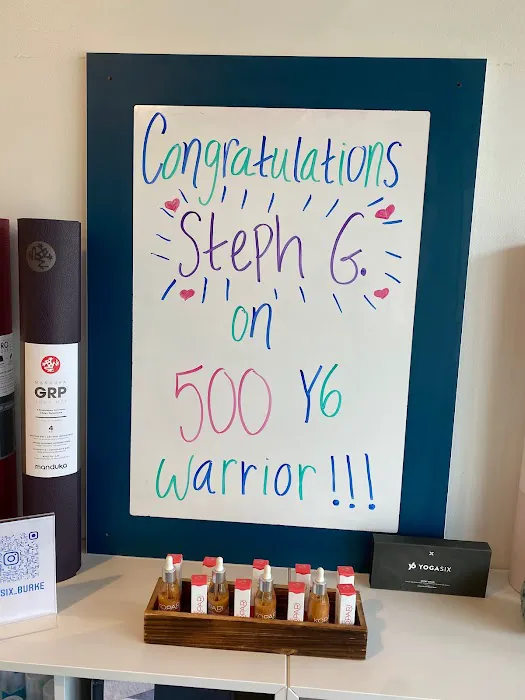 Congratulations
Steph G.
on
500 Y6
Warrior!!!
GRP
4
manduka
SIX_BURKE
Y6 YOGASIX